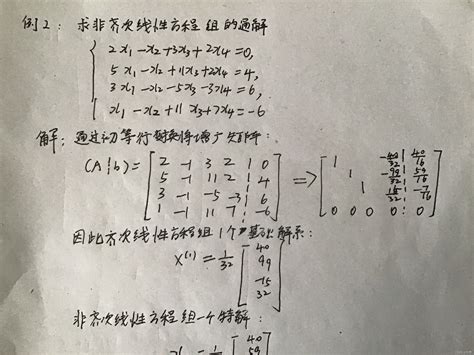 例2：求非齐次线性方程组的通解
2x₁-x₂+3x₃+2x₄=0,
5x₁-x₂+11x₃+2x₄=4,
3x₁-x₂-5x₃-3x₄=6,
x₁-x₂+11x₃+7x₄=-6
解：通过初等行变换将增广矩阵：
(A|b)= [2 -1 3 2 | 0] => [1 -40/32 | 40/16]
[5 -1 11 2 | 4] [1 -99/32 | 59/16]
[3 -1 -5 -3 | 6] [1 15/32 | -7/16]
[1 -1 11 7 | -6] [0 0 0 0 | 0]
因此齐次线性方程组1个基础解系：
X⁽¹⁾=1/32 [40
99
-15
32]
非齐次线性方程组一个特解：
40
59